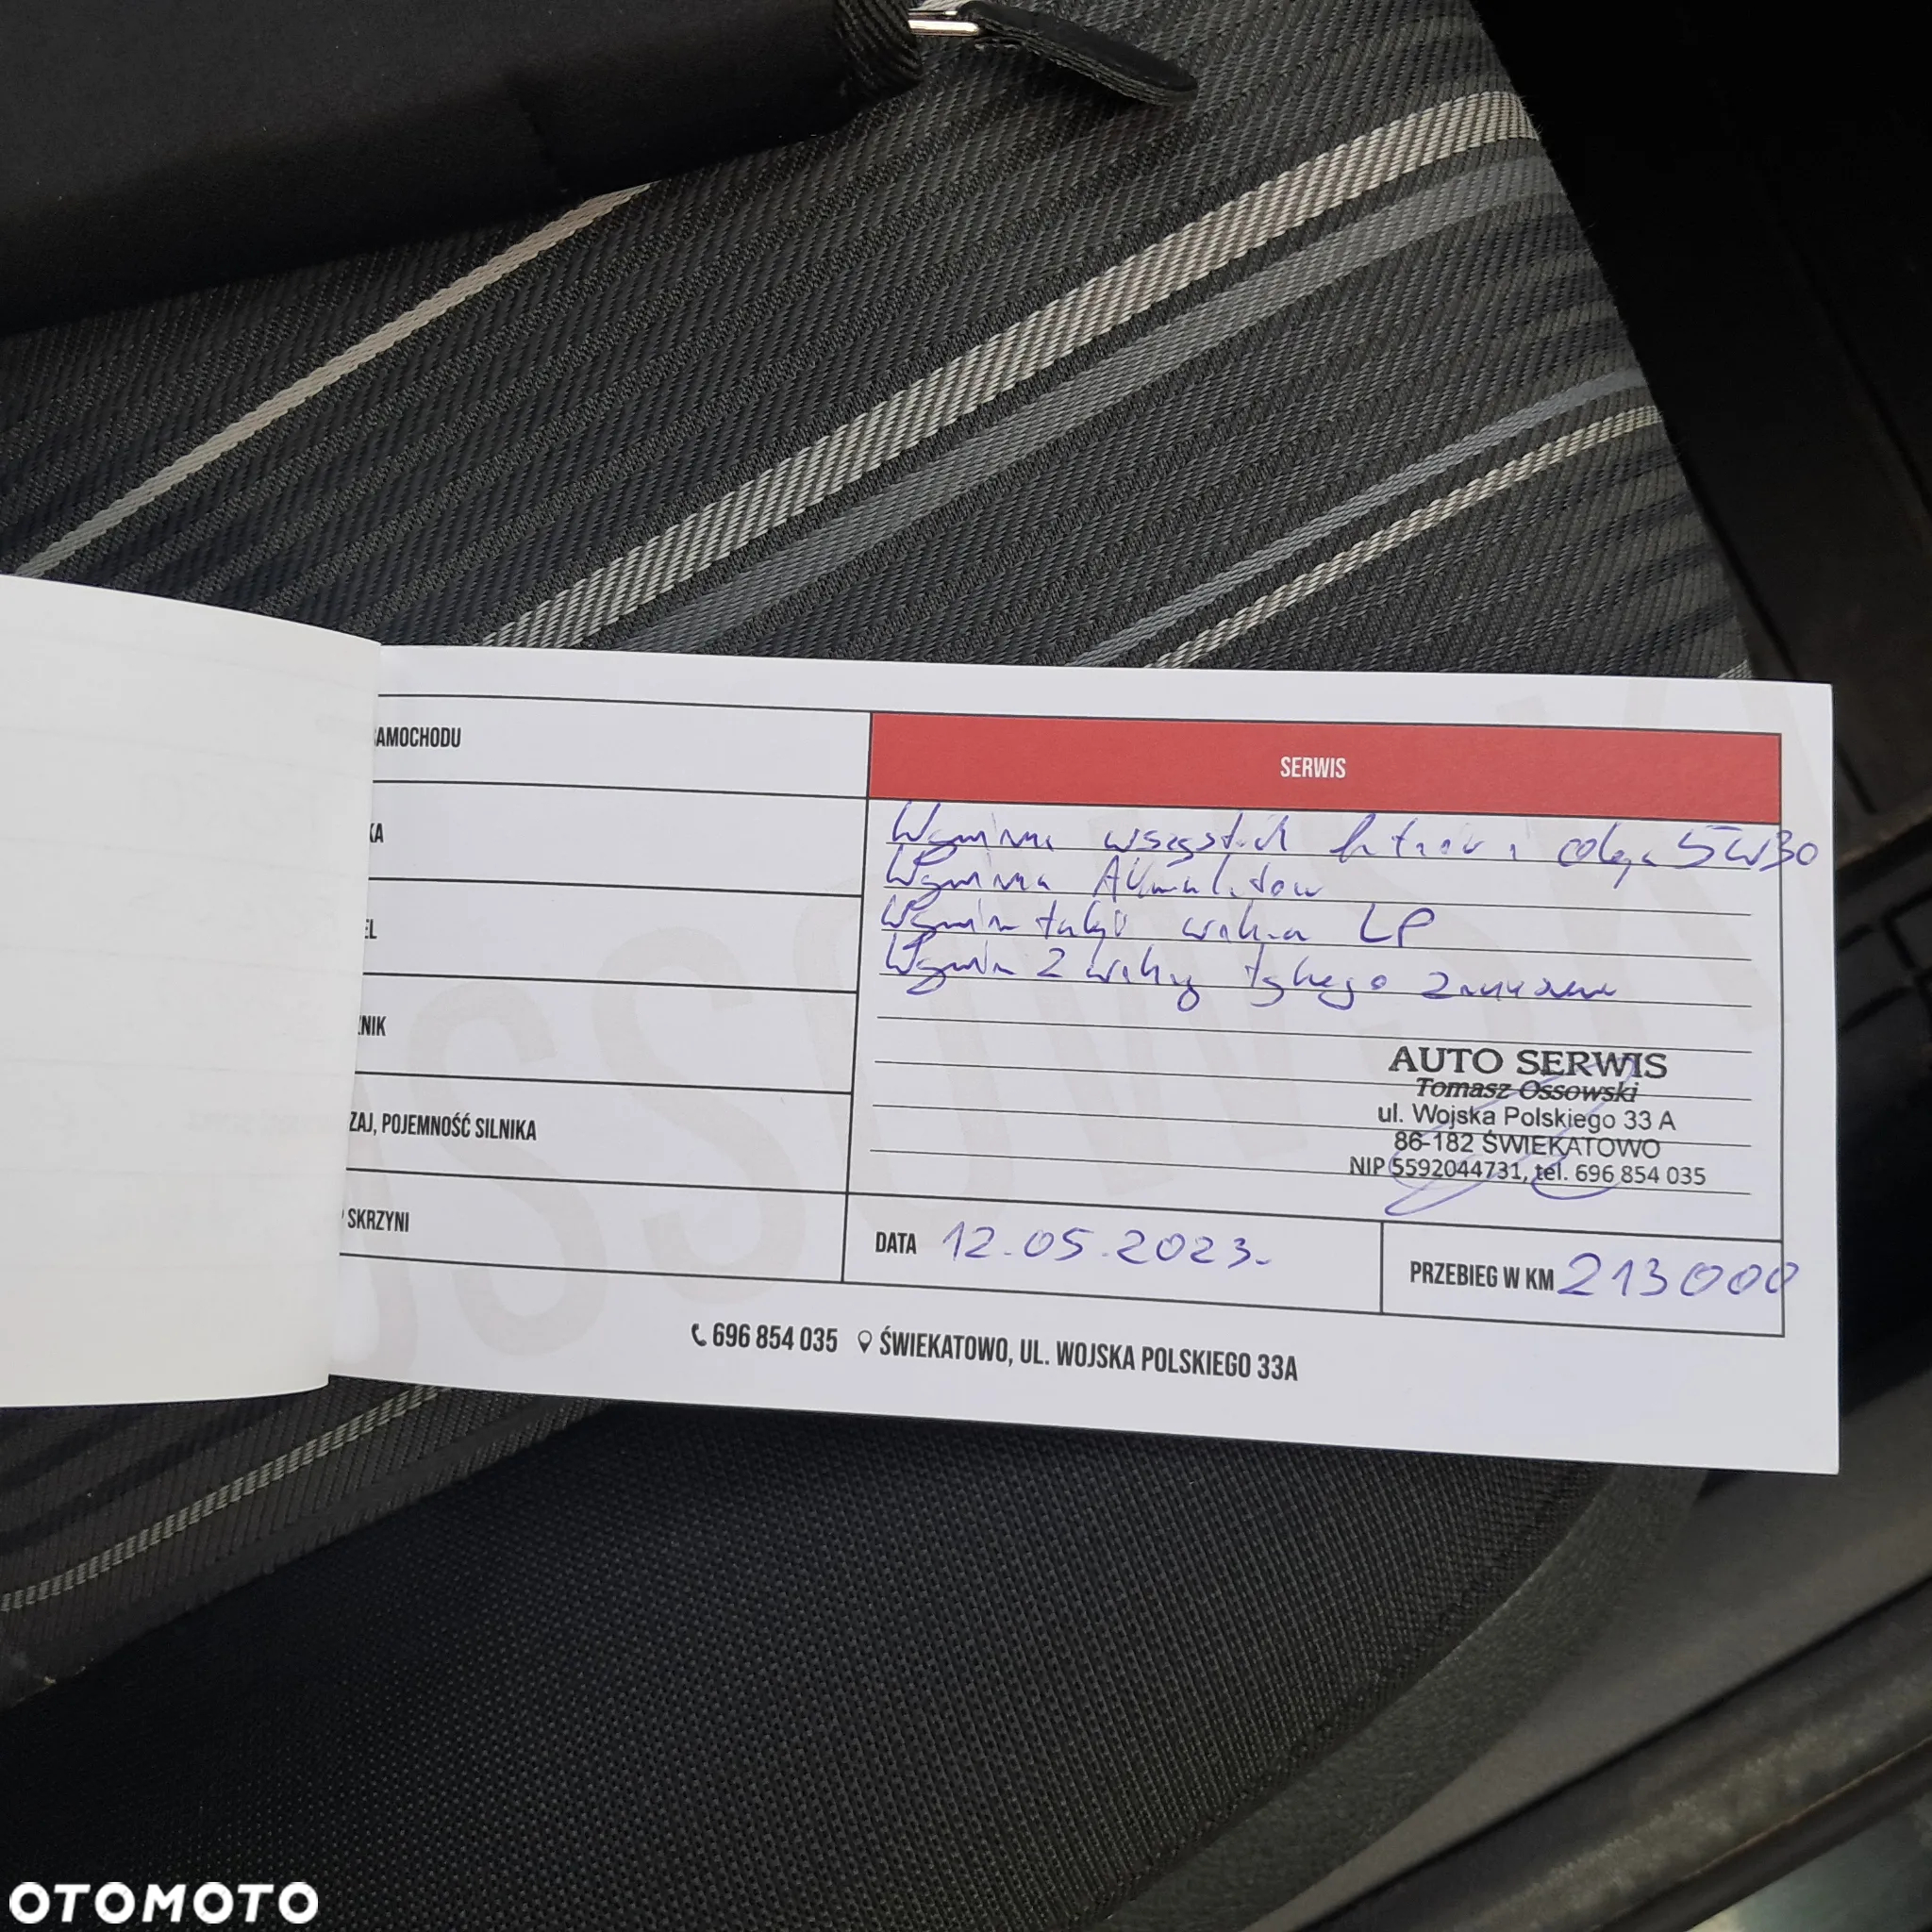 AMOCHODU
SERWIS
KA
Wymiana wszystkich filtrów i oleju 5W30
EL
Wymiana Akumulatora
Wymiana LP
Wymiana 2 tylnego
NIK
AUTO SERWIS
Tomasz Ossowski
ul. Wojska Polskiego 33 A
86-182 ŚWIEKATOWO
NIP 5592044731, tel. 696 854 035
ZAJ, POJEMNOŚĆ SILNIKA
SKRZYNI
DATA 12.05.2023.
PRZEBIEG W KM 213000
696 854 035 ŚWIEKATOWO, UL. WOJSKA POLSKIEGO 33A
OTOMOTO